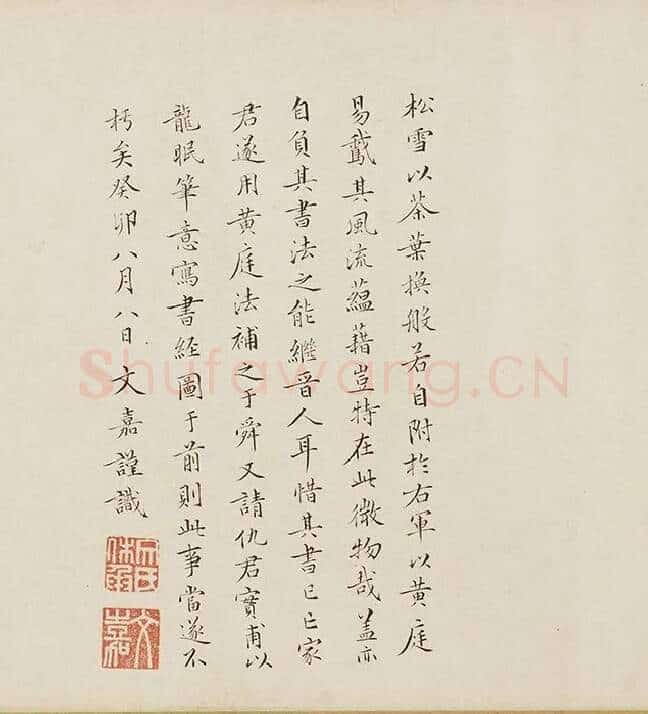 松雪以茶葉換般若自附於右軍以黃庭
易鵞其風流蘊藉豈特在此微物哉蓋亦
自負其書法之能繼晉人耳惜其書已亡家
君遂用黃庭法補之于舜又請仇君實甫以
龍眠筆意寫書經圖于前則此事當遂不
朽矣癸卯八月八日文嘉謹識
文氏休承
文嘉
Shufawang.CN